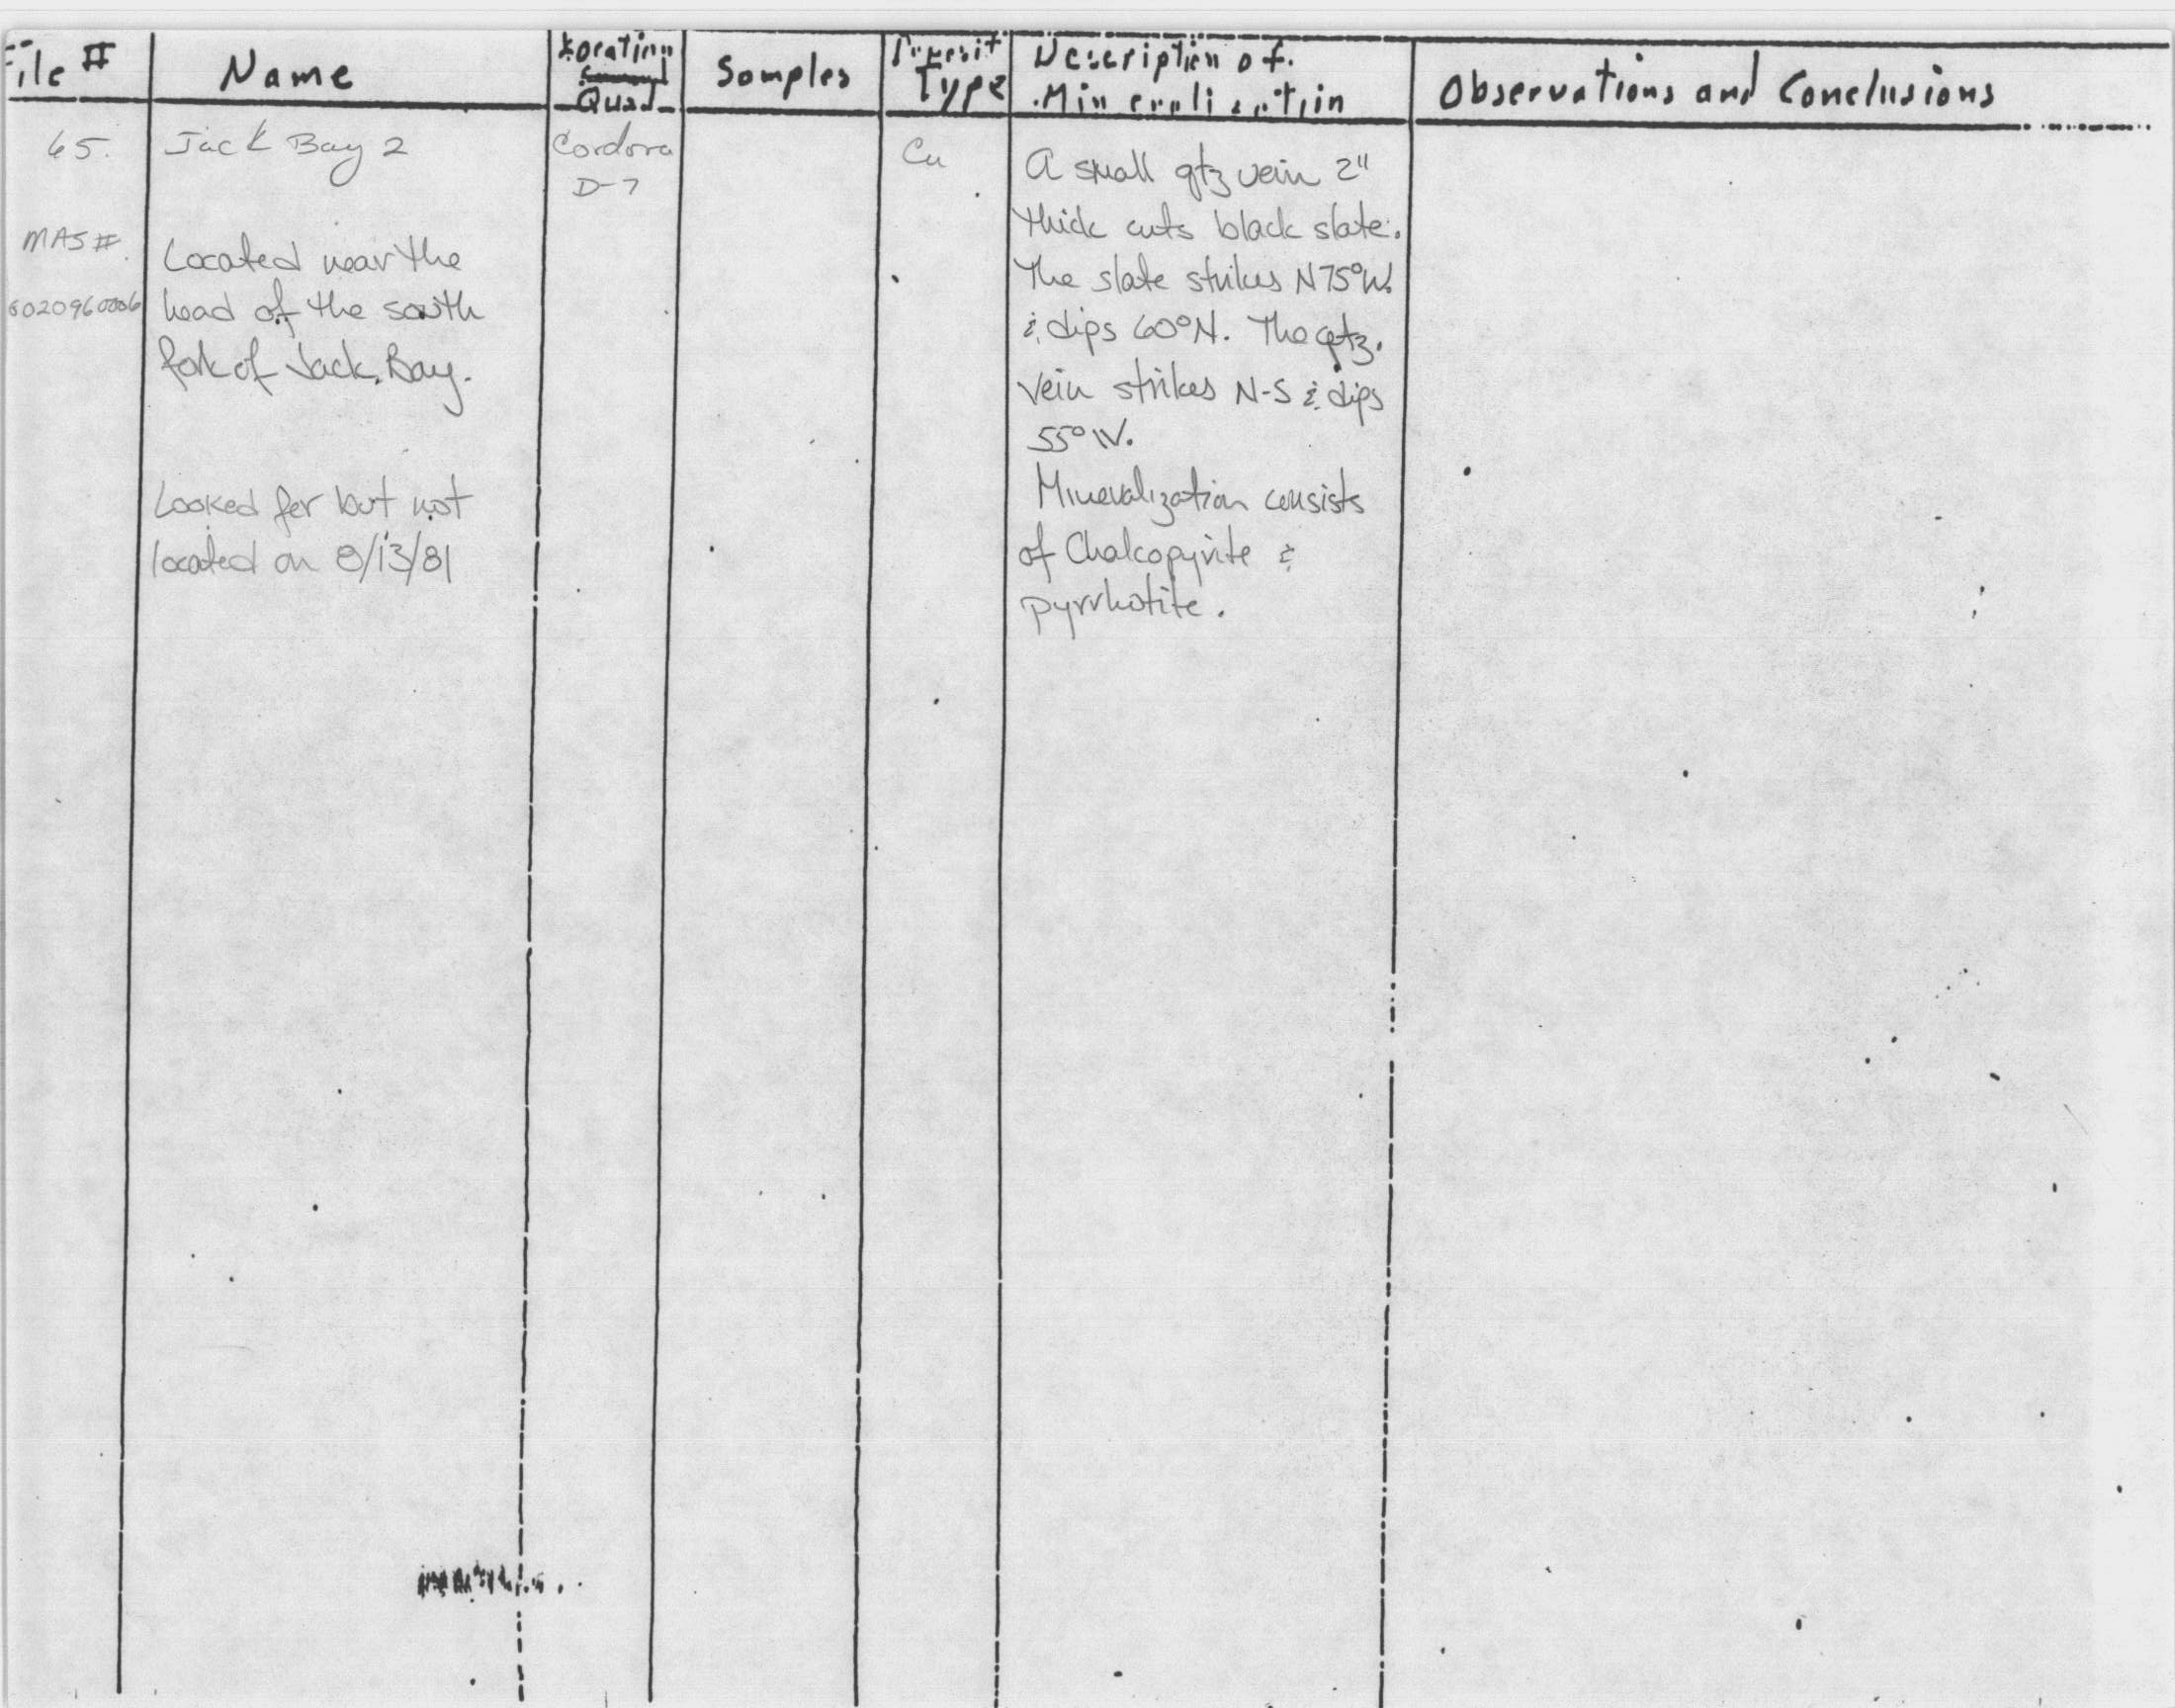 File #
Name
Location
Quad
Samples
Deposit
Type
Description of
Mineralization
Observations and Conclusions
65.
MAS #
0020960006
Jack Bay 2
Located near the
head of the south
fork of Jack Bay.
Looked for but not
located on 8/13/81
Cordova
D-7
Cu
A small qtz vein 2"
thick cuts black slate.
The slate strikes N75°W.
& dips 60°N. The qtz.
vein strikes N-S & dips
55°W.
Mineralization consists
of Chalcopyrite &
pyrrhotite.